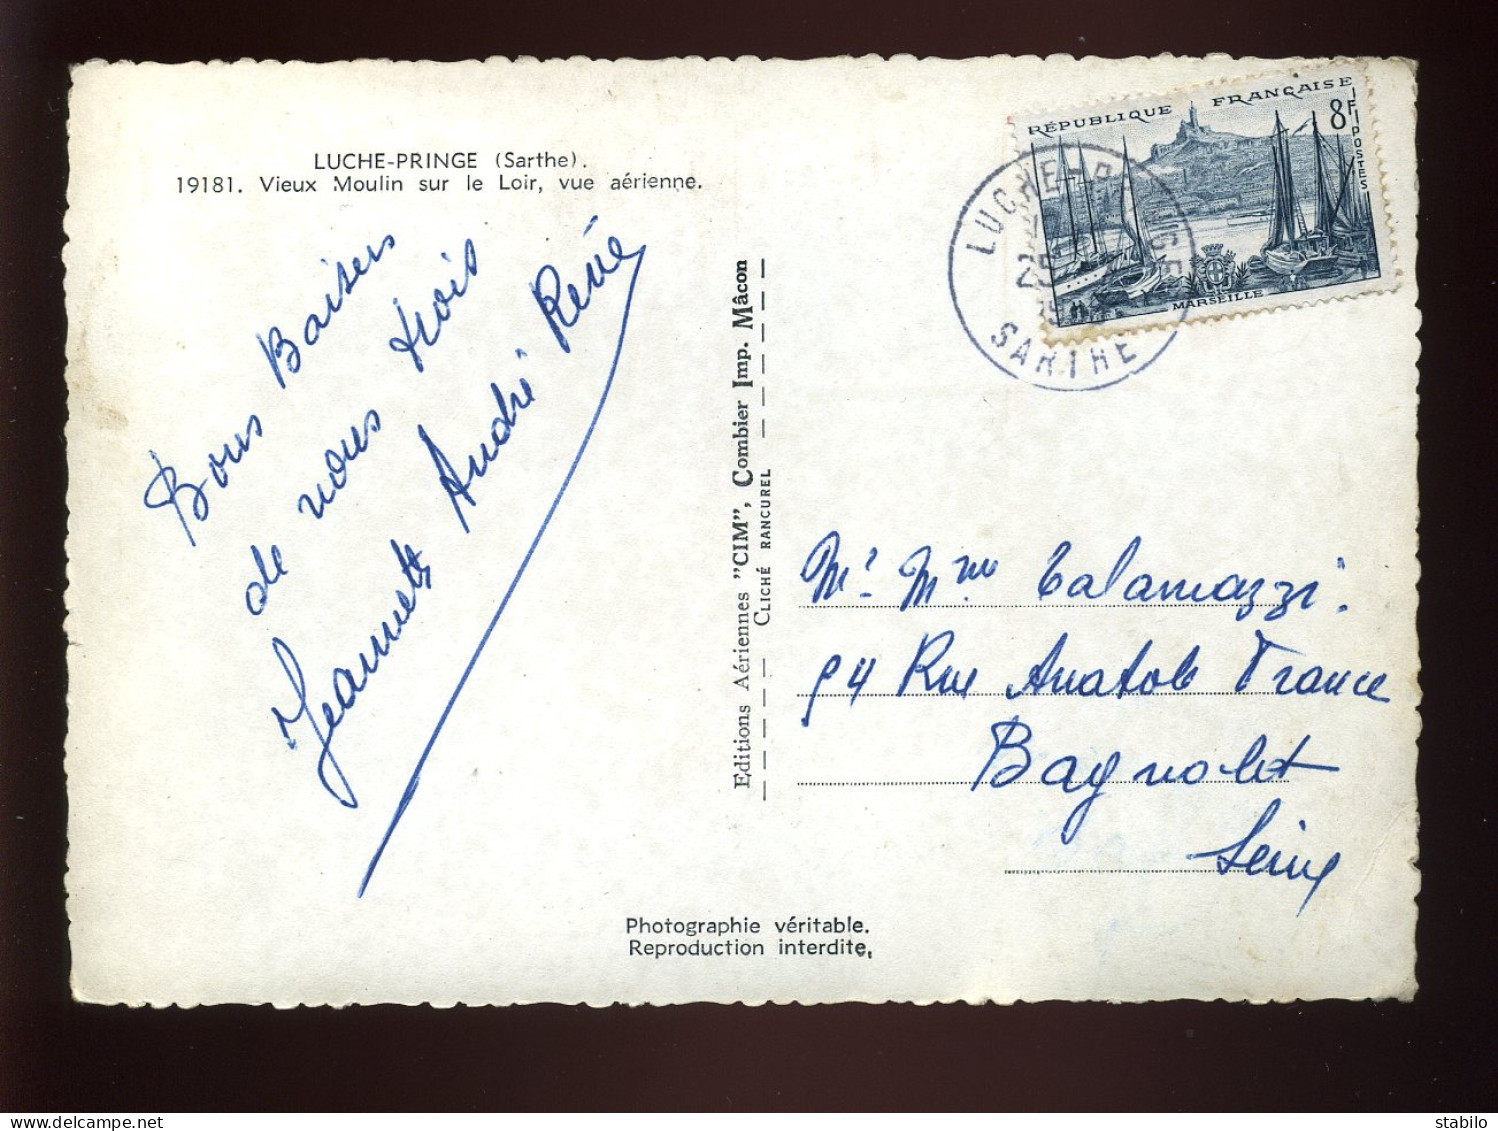 LUCHE-PRINGE (Sarthe).
19181. Vieux Moulin sur le Loir, vue aérienne.
Bons Baisers
de nous trois
Jeannette André René
Editions Aériennes "CIM", Combier Imp. Mâcon
CLICHÉ RANCUREL
RÉPUBLIQUE FRANÇAISE
8F
POSTES
MARSEILLE
LUCHE-P
25
SARTHE
Mr. Mme Talamazzi.
94 Rue Anatole France
Bagnolet
Seine
Photographie véritable.
Reproduction interdite,
stabilo